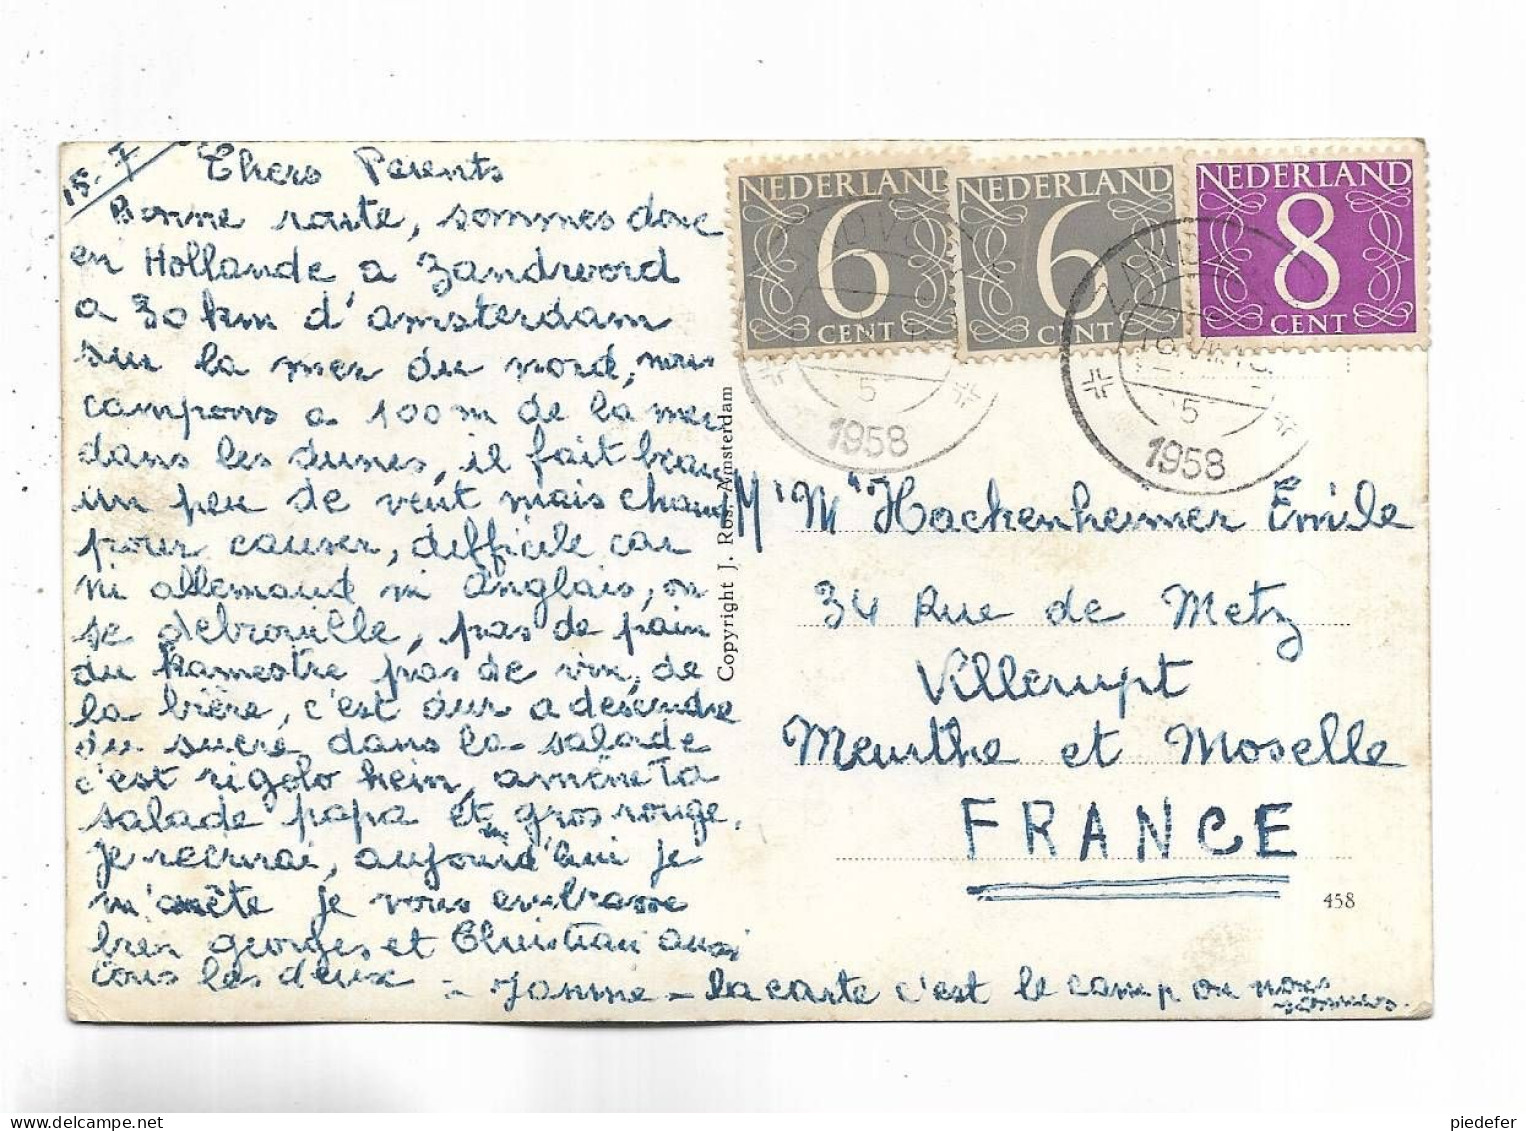 15-7
Chers Parents
Bonne route, sommes donc
en Hollande, a Zandword
a 30 km d'amsterdam
sur la mer du nord, nous
campons a 100 m de la mer
dans les dunes, il fait beau
un peu de vent mais chaud
pour causer, difficile car
ni allemand ni Anglais, on
se débrouille, pas de pain
du kamestre pas de vin, de
la bière, c'est dur a descendre
du sucre dans la salade
c'est rigolo hein, amène ta
salade papa et gros rouge.
je recrirai, aujourd'hui je
m'arrête je vous embrasse
bien georges et Christian aussi
tous les deux - Janine - la carte c'est le camp ou nous
sommes.
NEDERLAND
6
CENT
NEDERLAND
6
CENT
NEDERLAND
8
CENT
5
1958
5
1958
Copyright J. Ros. Amsterdam
M. Mme Hackenheimer Emile
34 Rue de Metz
Villerupt
Meurthe et Moselle
FRANCE
458
piedefer